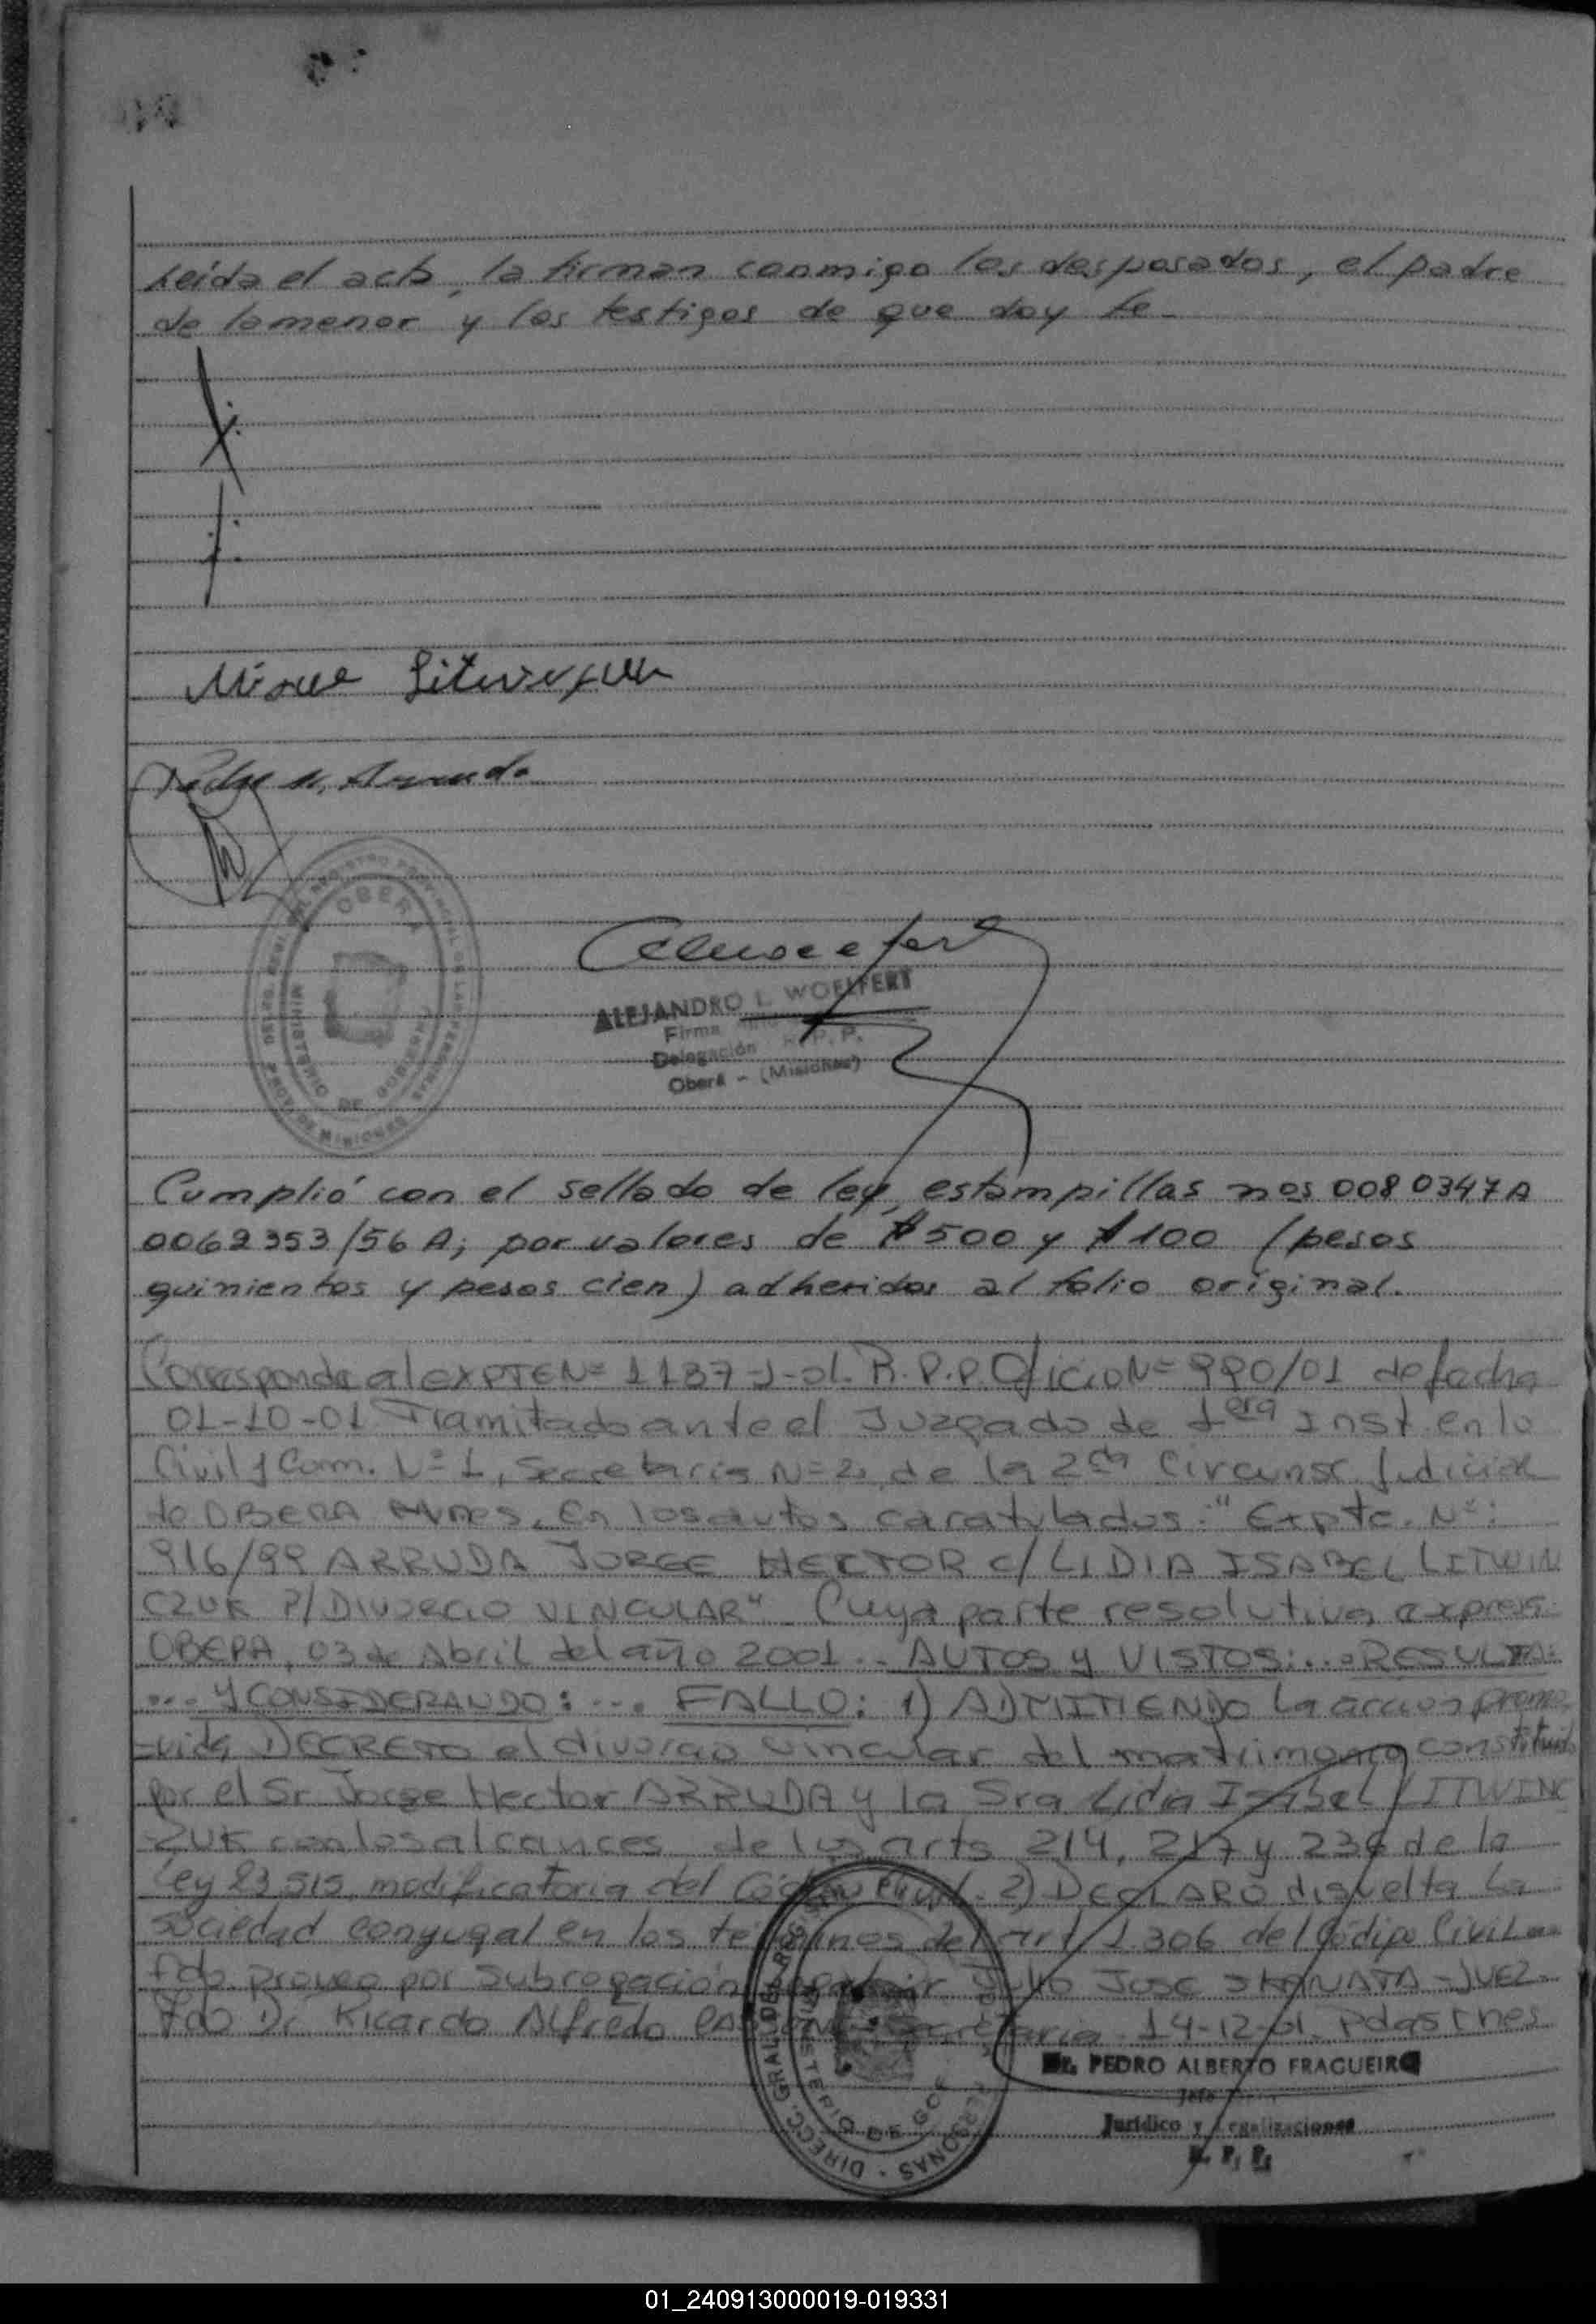 Leída el acta, la firman conmigo los desposados, el padre
de la menor y los testigos de que doy fe.
ALEJANDRO L. WOELFERT
Firma
Delegación R. P. P.
Oberá - (Misiones)
OBERA
MINISTERIO DE GOBIERNO
Cumplió con el sellado de ley, estampillas nos 0080347A
0062353/56 A; por valores de $500 y $100 (pesos
quinientos y pesos cien) adheridos al folio original.
Corresponde al expTE Nº 1137-J-01. R.P.P. Oficio Nº 990/01 de fecha
01-10-01 Tramitado ante el Juzgado de 1era Inst. en lo
Civil y Com. Nº 1, Secretaria Nº 2, de la 2da Circunsc. Judicial
de OBERA Mnes. En los autos caratulados: "Expte. Nº:
916/99 ARRUDA JORGE HECTOR C/ LIDIA ISABEL LITWIN
CZUK P/ DIVORCIO VINCULAR" Cuya parte resolutiva expresa:
OBERA, 03 de Abril del año 2001.- AUTOS y VISTOS:... RESULTA:
... y CONSIDERANDO: ... FALLO: 1) ADMITIENDO la accion promo-
-vida DECRETO el divorcio vincular del matrimonio constituido
por el Sr Jorge Hector ARRUDA y la Sra Lidia Isabel LITWINC
ZUK con los alcances de los arts 214, 217 y 236 de la
Ley 23.515, modificatoria del Código Civil. 2) DECLARO disuelta la
sociedad conyugal en los términos del art 1306 del Código Civil
Fdo. proveo por subrogación Julio JOSE - JUEZ.
Fdo Dr Ricardo Alfredo Secretaria 14-12-01. Pdas Mnes
Dr. PEDRO ALBERTO FRAGUEIRO
Jefe
Jurídico y Legalizaciones
R. P. P.
01_240913000019-019331